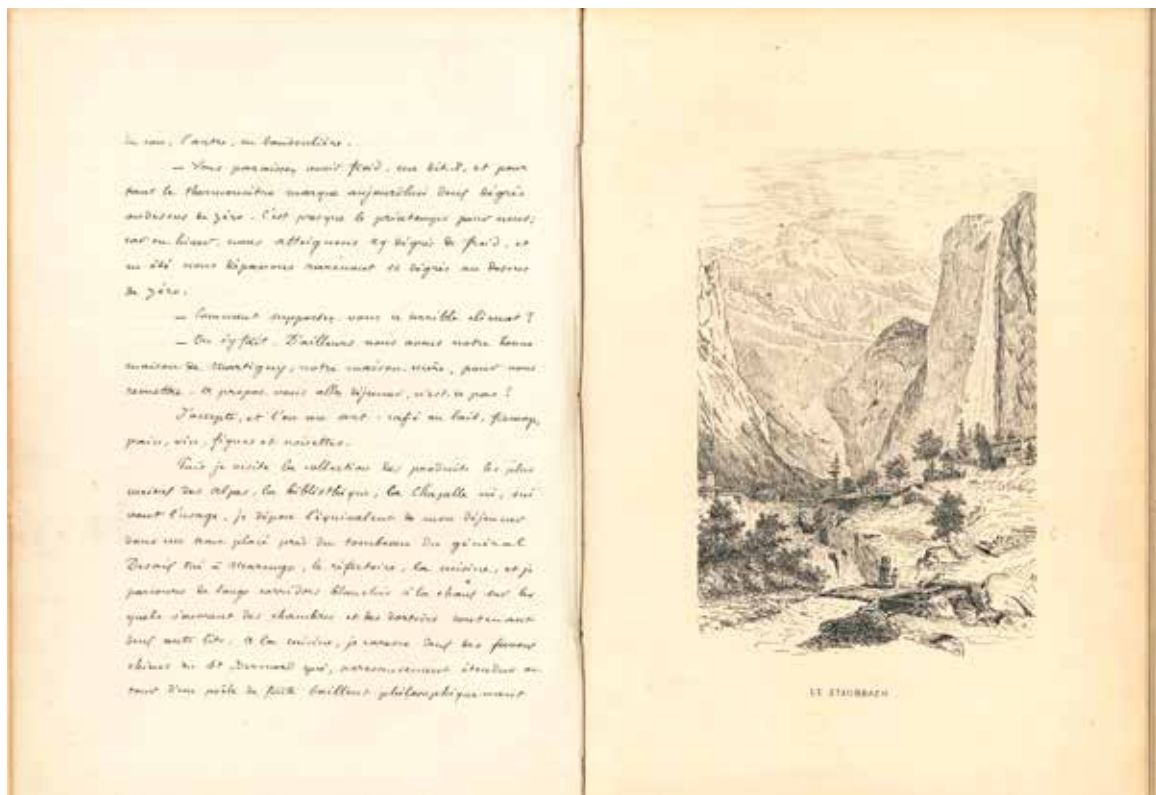 du cou, l'autre, en bandoulière.
— Vous paraissez avoir froid, me dit-il, et pour
tant le thermomètre marque aujourd'hui deux degrés
au dessus de zéro. C'est presque le printemps pour nous;
car en hiver, nous atteignons 29 degrés de froid, et
en été nous dépassons rarement 12 degrés au dessus
de zéro.
— Comment supportez-vous ce terrible climat ?
— On s'y fait. D'ailleurs nous avons notre bonne
maison de Martigny, notre maison-mère, pour nous
remettre. A propos vous allez déjeuner, n'est-ce pas ?
J'accepte, et l'on me sert café au lait, fromage,
pain, vin, figues et noisettes.
Puis je visite la collection des produits les plus
curieux des Alpes, la bibliothèque, la Chapelle où, sui
vant l'usage, je dépose l'équivalent de mon déjeuner
dans un tronc placé près du tombeau du général
Desaix tué à Marengo, le réfectoire, la cuisine, et je
parcours de longs corridors blanchis à la chaux sur les
quels s'ouvrent des chambres et des dortoirs contenant
deux cents lits. A la cuisine, je caresse deux des fameux
chiens du St Bernard qui, paresseusement étendus au
tour d'un poêle de fonte baillent philosophiquement
LE STAUBBACH